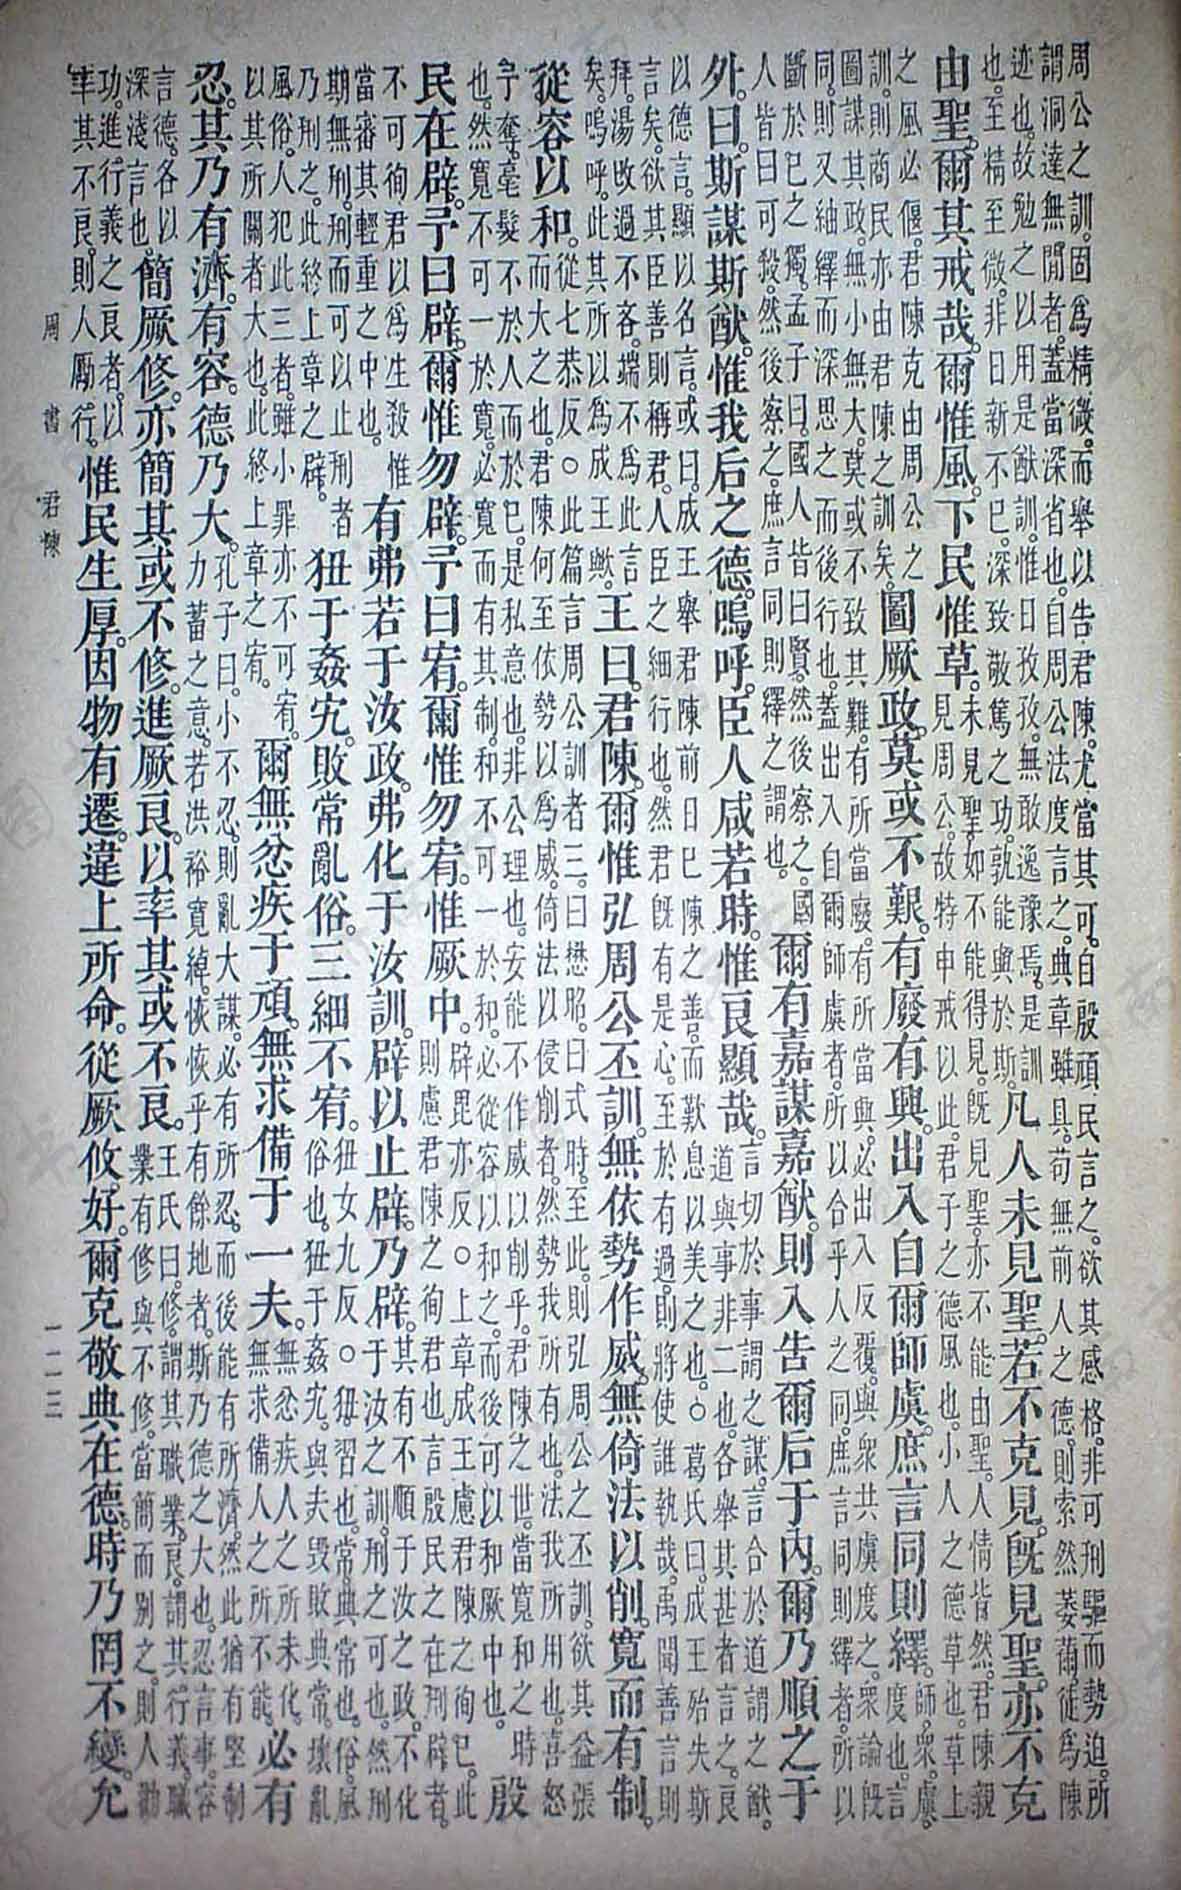 周公之訓。固爲精微。而舉以告君陳。尤當其可。自殷頑民言之。欲其感格。非可刑驅而勢迫。所
謂洞達無間者。蓋當深省也。自周公法度言之。典章雖具。苟無前人之德。則索然萎薾。徒爲陳
迹也。故勉之以用是猷訓。惟日孜孜。無敢逸豫焉。是訓
也。至精至微。非日新不已。深致敬篤之功。孰能與於斯。
凡人未見聖。若不克見。旣見聖。亦不克
由聖。爾其戒哉。爾惟風。下民惟草。
未見聖。如不能得見。旣見聖。亦不能由聖。人情皆然。君陳親
見周公。故特申戒以此。君子之德風也。小人之德草也。草上
之風必偃。君陳克由周公之
訓。則商民亦由君陳之訓矣。
圖厥政。莫或不艱。有廢有興。出入自爾師虞。庶言同則繹。
師。衆。虞。
度也。言
圖謀其政。無小無大。莫或不致其難。有所當廢。有所當興。必出入反覆。與衆共虞度之。衆論旣
同。則又紬繹而深思之。而後行也。蓋出入自爾師虞者。所以合乎人之同。庶言同則繹者。所以
斷於已之獨。孟子曰。國人皆曰賢。然後察之。國
人皆曰可殺。然後察之。庶言同則繹之謂也。
爾有嘉謀嘉猷。則入告爾后于內。爾乃順之于
外。曰。斯謀斯猷。惟我后之德。嗚呼。臣人咸若時。惟良顯哉。
言切於事謂之謀。言合於道謂之猷。
道與事非二也。各舉其甚者言之。良
以德言。顯以名言。或曰。成王舉君陳前日已陳之善。而歎息以美之也。○葛氏曰。成王殆失斯
言矣。欲其臣善則稱君。人臣之細行也。然君旣有是心。至於有過。則將使誰執哉。禹聞善言則
拜。湯改過不吝。端不爲此言
矣。嗚呼。此其所以爲成王歟。
王曰。君陳。爾惟弘周公丕訓。無依勢作威。無倚法以削。寬而有制。
從容以和。
從七恭反。○此篇言周公訓者三。曰懋昭。曰式時。至此。則弘周公之丕訓。欲其益張
而大之也。君陳何至依勢以爲威。倚法以侵削者。然勢我所有也。法我所用也。喜怒
予奪。毫髮不於人而於已。是私意也。非公理也。安能不作威以削乎。君陳之世。當寬和之時
也。然寬不可一於寬。必寬而有其制。和不可一於和。必從容以和之。而後可以和厥中也。
殷
民在辟。予曰辟。爾惟勿辟。予曰宥。爾惟勿宥。惟厥中。
辟毘亦反。○上章成王慮君陳之徇已。此
則慮君陳之徇君也。言殷民之在刑辟者。
不可徇君以爲生殺。惟
當審其輕重之中也。
有弗若于汝政。弗化于汝訓。辟以止辟。乃辟。
其有不順于汝之政。不化
于汝之訓。刑之可也。然刑
期無刑。刑而可以止刑者
乃刑之。此終上章之辟。
狃于姦宄。敗常亂俗。三細不宥。
狃女九反。○狃習也。常。典常也。俗。風
俗也。狃于姦宄。與夫毀敗典常。壞亂
風俗。人犯此三者。雖小罪亦不可宥。
以其所關者大也。此終上章之宥。
爾無忿疾于頑。無求備于一夫。
無忿疾人之所未化。
無求備人之所不能。
必有
忍。其乃有濟。有容。德乃大。
孔子曰。小不忍。則亂大謀。必有所忍。而後能有所濟。然此猶有堅制
力蓄之意。若洪裕寬綽。恢恢乎有餘地者。斯乃德之大也。忍言事。容
言德。各以
深淺言也。
簡厥修。亦簡其或不修。進厥良。以率其或不良。
王氏曰。修。謂其職業。良。謂其行義。職
業有修與不修。當簡而別之。則人勸
功。進行義之良者。以
率其不良。則人勵行。
惟民生厚。因物有遷。違上所命。從厥攸好。爾克敬典在德。時乃罔不變。允
周書 君陳
一二三